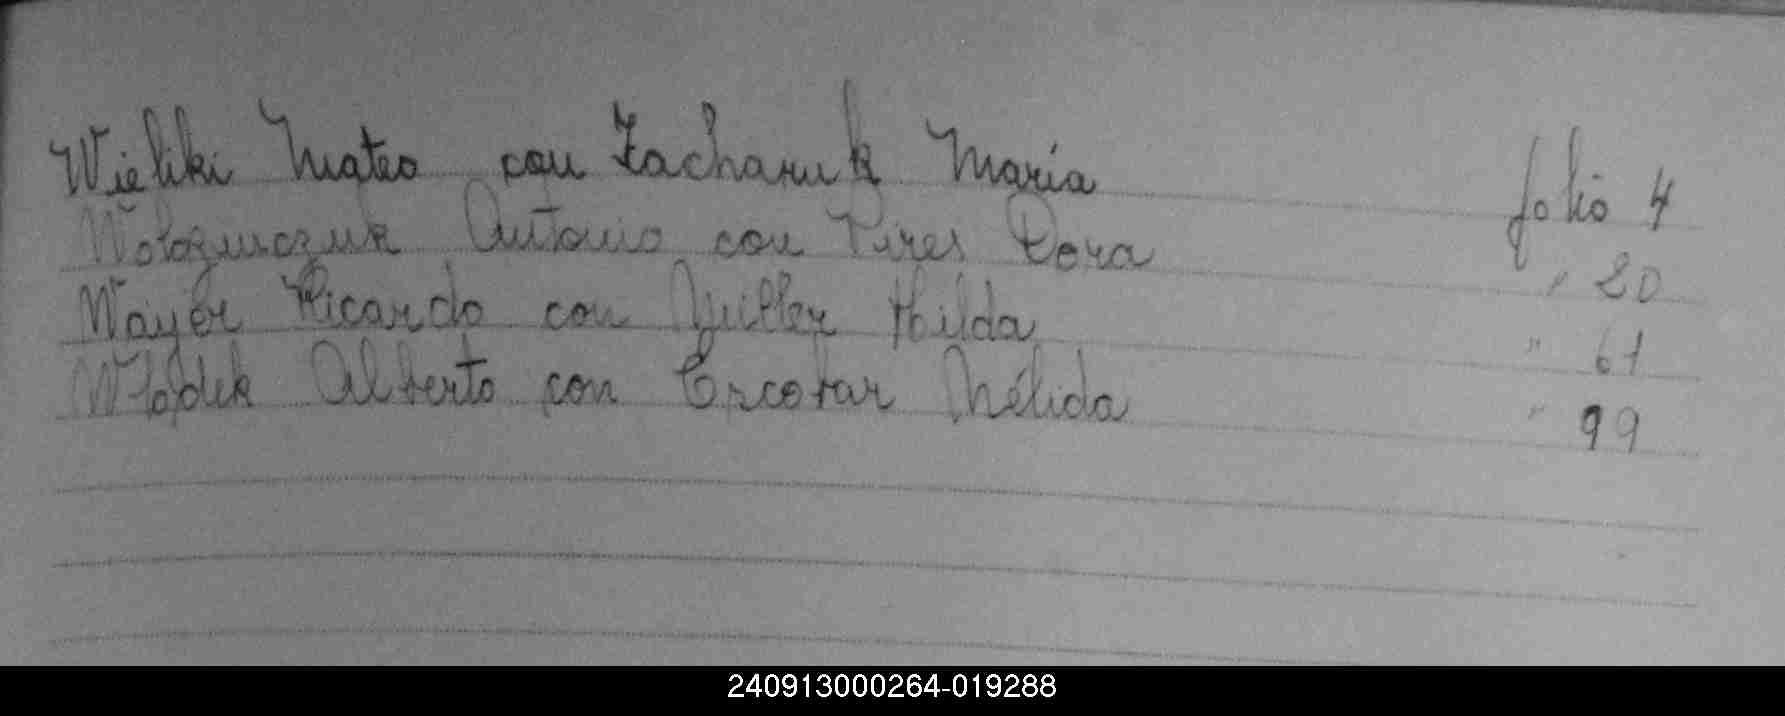 Wieliki Mateo con Zacharuk María folio 4
Antonio con Pires Dora " 20
Mayer Ricardo con Hilda " 61
Wlodek Alberto con Escobar Nélida " 99
240913000264-019288